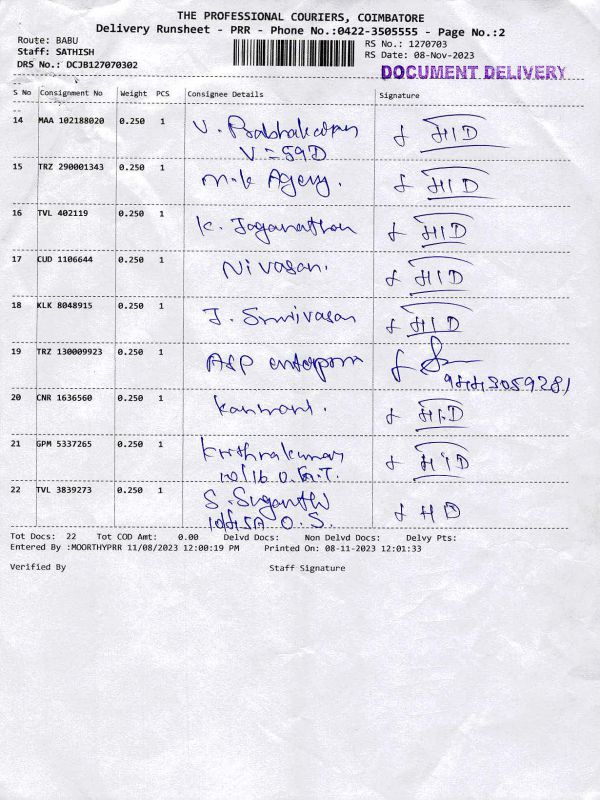 THE PROFESSIONAL COURIERS, COIMBATORE
Delivery Runsheet - PRR - Phone No.:0422-3505555 - Page No.:2
Route: BABU
RS No.: 1270703
Staff: SATHISH
RS Date: 08-Nov-2023
DRS No.: DCJB127070302
DOCUMENT DELIVERY
S No Consignment No Weight PCS Consignee Details Signature
14 MAA 102188020 0.250 1 V. Prabhakaran
V = 59 D
15 TRZ 290001343 0.250 1 M.K Agency.
16 TVL 402119 0.250 1 K. Jaganathan
17 CUD 1106644 0.250 1 Nivasan.
18 KLK 8048915 0.250 1 J. Srinivasan
19 TRZ 130009923 0.250 1 ASP enterprn
9443059281
20 CNR 1636560 0.250 1 Kannan.
21 GPM 5337265 0.250 1 Krithrakumar
22 TVL 3839273 0.250 1 S. Suganthi
Tot Docs: 22 Tot COD Amt: 0.00 Delvd Docs: Non Delvd Docs: Delvy Pts:
Entered By :MOORTHYPRR 11/08/2023 12:00:19 PM Printed On: 08-11-2023 12:01:33
Verified By Staff Signature